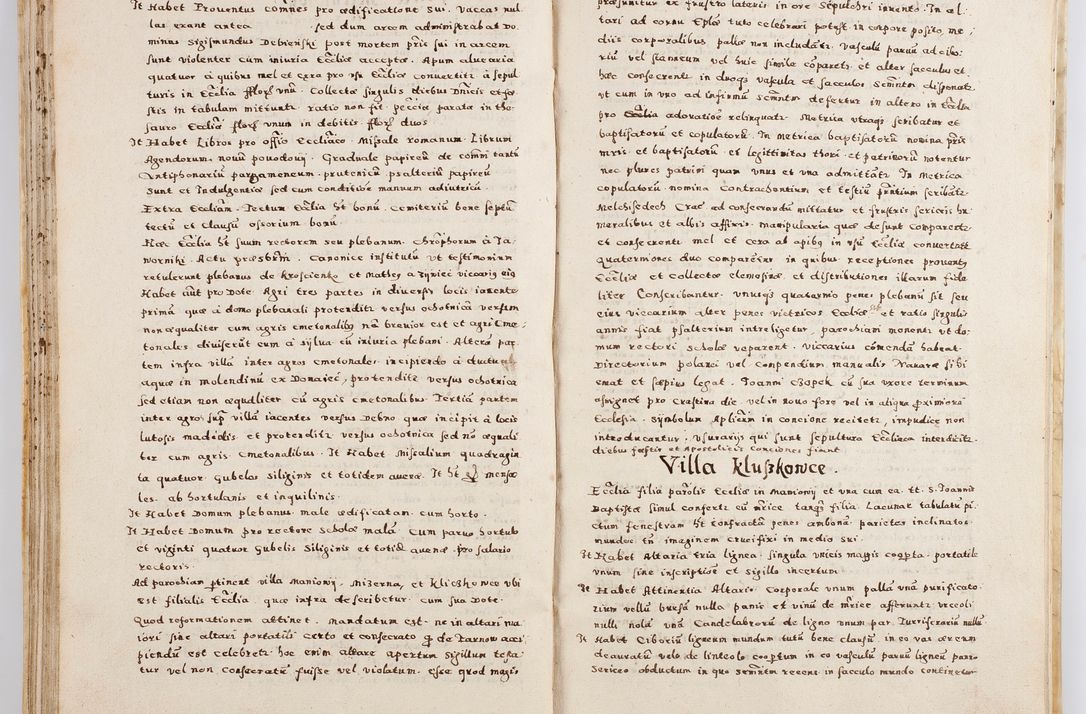 It Habet Proventus comñes pro ædificatione sui. Vaccas nul
las exant antea sed dum arcem administrabat Do
minus Sigismundus Debienski post mortem pris sui in arcem
sunt violenter cum iniuria Eccliæ acceptæ. Apum aluearia
quatuor à quibus mel et cera pro usu Eccliæ convertitr à sepul
turis in Ecclia fflor unū. Collectæ singulis diebus Dñicis et fe
stis in tabulam mittuntr. ratio non fit. peccia parata in the
sauro Eccliæ flor unum in debitis flor duos.
It Habet Libros pro offio Eccliaco. Missale romanum. Librum
Agendorum. novū povodovij. Graduale papireū de comni tantū
Antiphonariū pargameneum. prutenicū. psalteriū papireū
Sunt et Indulgentiæ sed cum conditioē manuum adiutricū.
Extra Eccliam. Tectum Eccliæ ht bonū. Cemiteriū bene septū
tectū et clausū ostorium bonū.
Hæc Ecclia ht suum rectorem seu plebanum. Christophorum à Ja
worniki. Actu præsbrm. Canonice institutū ut testimonium
retulerunt plebanus de Kroscienko et Mathes a Zyniec vicariꝰ eiꝰ
Habet aūt pro Dote. Agri tres partes in diversis locis iacente
primā quæ à domo plebanali protenditr versus ochotnicā versum
non æqualiter cum agris cmetonalibꝰ nā brevior est et agri Cme
tonales diviserūt eum à sylua cū iniuria plebani. Alterā par
tem infra villā inter agros cmetonales incipiendo à ductu
aquæ in molendinū ex Donaiec, protendite versus ochotnica
sed etiam non æqualiter cū agris cmetonalibus. Tertiā partem
inter agros sup villā iacentes versus Debno quæ incipit à locis
lutosis madidis. et protenditr versus ochotnica sed nō æquali
ter cum agris cmetonalibus. It Habet Missalium quadragin
ta quatuor gubelos siliginis et totidem avenæ. It ht mensa
les ab hortulanis et inquilinis.
It Habet Domum plebanus male ædificatam cum horto.
It Habet Domum pro rectore scholæ malā. Cum parvo hortulo
et viginti quatuor gubelis siliginis et totidē avenæ. pro salario
rectoris.
Ad parochiam ptinent villa Maniowy. Mizerna, et Kliczkowce ubi
est filialis Ecclia, quæ infra describetur. cum sua Dote.
Quod reformationem attinet. Mandatum est. ne in altari ma
iori sine altari portatili certo et consecrato de Tarnow acci
piendū est celebretr hoc enim altare apertum sigillum testa
tur vel non consecratū fuisse vel violatum. esse quod magis
præsumitur ex frustro lateris in ore sepulchri invento. In al
tari ad cornu Eplæ tuto celebrari potest in corpore posito me
diis corporalibus pallæ non includātr. Vasculū parvū ad cibo
riū vel stanneum vel huic simile comparetr et alter sacculus et
hæc consecrentr in duoꝰ vascula et sacculos Semñtm disponatr
ut cum in uno ad infirmū semñtm defertur in altero in Ecclia
pro adoratioē relinquatr. Metrica utraqꝫ scribatur et
baptisatorū et copulatorū. In Metrica baptisatorū nomina pris
mris et baptisatorū. et legittimitas thori. et patrinorū notentur
nec plures patrini quam unus et una admittatr. In metrica
copulatorū. nomina contrahentium et testiū pñtium scribatr
Melchisedech Crac ad consecrandū mittatur et frustris sericeis hu
meralibus et albis affixis. manipularia quæ desunt comparentr
et consecrentr mel et cera ab apibꝰ in usū Eccliæ convertatr
quaterniones duo comparetur in quibus receptiones proventꝰ
Eccliæ et Collectæ elemosinæ. et distributiones illarum fide
liter Conscribantur. unusqꝫ quaternio penes plebanū sit seu
eius viccarium alter penes vietricos Eccliæ et ratio singulis
annis fiat psalterium intrelligetur, parochiani moneantr ut do
mum rectori scholæ reparent. viccarius cōmendā habeat.
Directorium polanci vel Compendium manualis Navaræ sibi
emat et sæpius legat. Joanni Czopek cū sua uxore terminum
assignet pro Crastina die. vel in novo foro vel in aliqua proximiora
Ecclesia. Symbolum Aplicum in concione recitetr, impudicæ non
introducantur, usurarijs qui sunt sepultura Eccliacæ interdicitr
diebus festis et Apostolicis Conciones fiant.
Villa Kluszkowce.
Ecclia filia parolis Eccliæ in Maniowy et una cum ea. tt. S. Joannis
Baptistæ simul confertr cū mrice tanqꝫ filia. Lacunar tabulatū pi
ctum fenestram ht confractā penes ambonē. parietes inclinatos
mundos tn imaginem crucifixi in medio sui.
It Habet Altaria tria lignea. singula unicis mappis coopta. portatile
unum sine inscriptioē et sigillo incertum.
It Habet Attinentia Altaris. Corporale unum pallā unā purificato
rium vellū bursā nulla panis et vinū de mrice afferuntr urceoli
nulli nolā unā. Candelabrorū de ligno unum par. Turriferariū nullū
It Habet Ciboriū ligneum mundum tutū bene clausū. in eo vas æreum
deauratū velo de linteolo cooptum in eo vasculū parvū ligneū panno
sericeo obductum in quo semñtm recens in sacculo mundo continetur